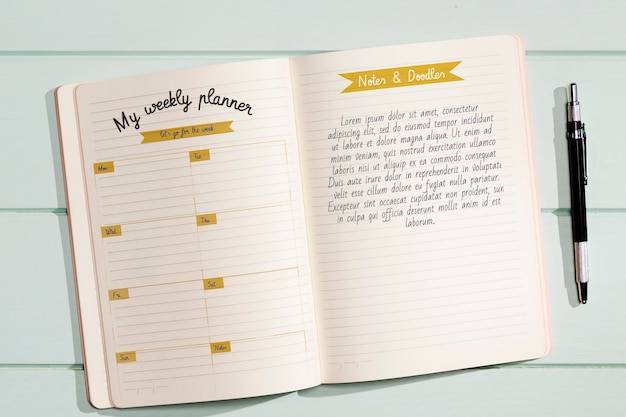 My weekly planner
Let's go for the week
Mon
Tue
Wed
Thu
Fri
Sat
Sun
Notes
Notes & Doodles
Lorem ipsum dolor sit amet, consectetur
adipiscing elit, sed do eiusmod tempor
incididunt ut labore et dolore magna
aliqua. Ut enim ad minim veniam, quis
nostrud exercitation ullamco laboris nisi
ut aliquip ex ea commodo consequat.
Duis aute irure dolor in reprehenderit in voluptate
velit esse cillum dolore eu fugiat nulla pariatur.
Excepteur sint occaecat cupidatat non proident, sunt
in culpa qui officia deserunt mollit anim id est
laborum.